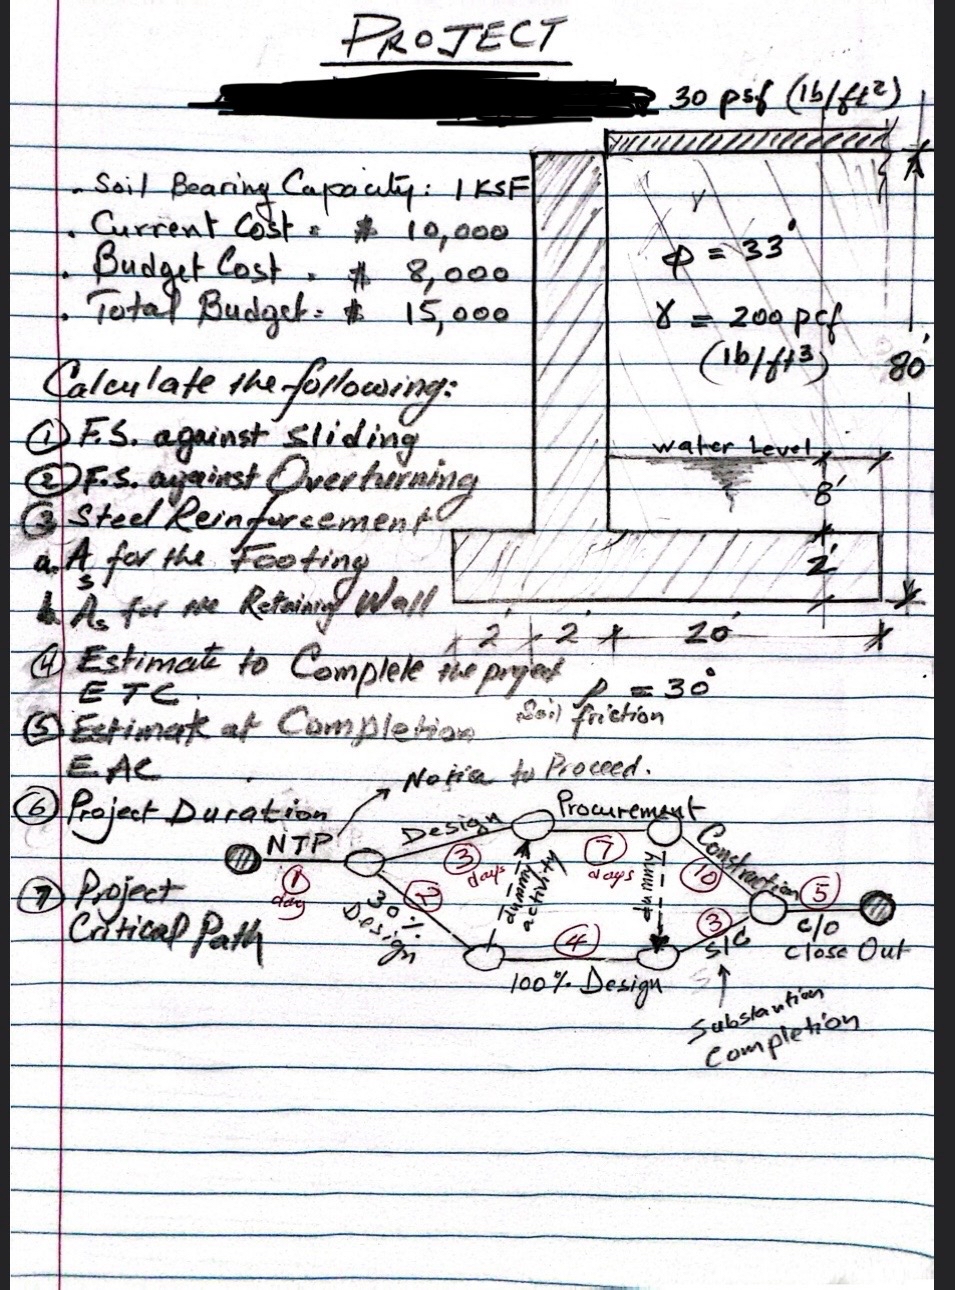 PROJECT
30 psf (lb/ft²)
. Soil Bearing Capacity: 1 KSF
. Current Cost = $ 10,000
. Budget Cost = $ 8,000
. Total Budget = $ 15,000
γ
φ = 33°
γ = 200 pcf
(lb/ft³)
80'
Calculate the following:
① F.S. against Sliding
② F.S. against Overturning
③ Steel Reinforcement
a. As for the Footing
b. As for the Retaining Wall
water Level
8'
2'
2' 2' 20'
④ Estimate to Complete the project
ETC.
ρ = 30°
Soil friction
⑤ Estimate at Completion
EAC
Notice to Proceed.
⑥ Project Duration
⑦ Project
Critical Path
NTP
1
day
Design
3
days
Procurement
7
days
Construction
10
5
C/O
Close Out
2
30%
Design
dummy
activity
dummy
4
100% Design
3
S/C
Substantion
Completion